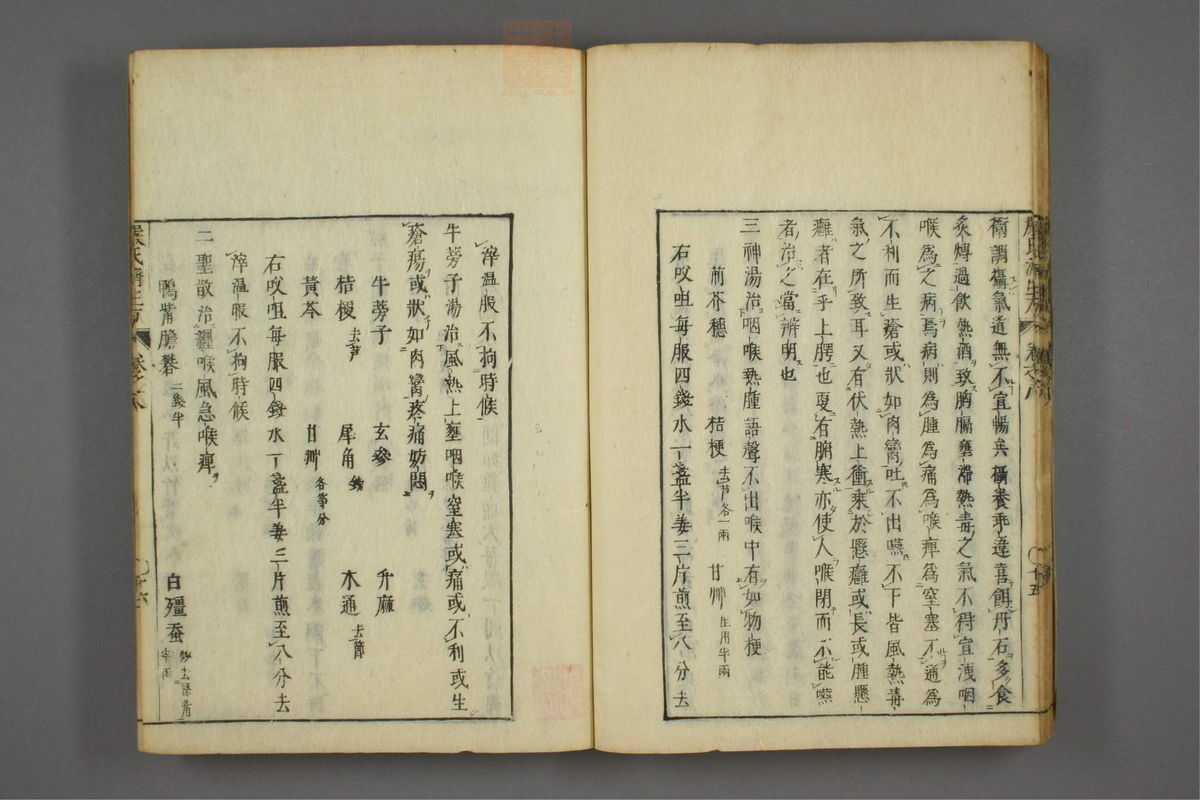 衞調攝氣道無不宜暢矣攝養乖違喜餌丹石多食
炙煿過飲熱酒致胸膈壅滯熱毒之氣不得宣洩咽
喉為之病焉病則為腫為痛為喉痺為窒塞不通為
不利而生瘡或狀如肉臠吐不出嚥不下皆風熱毒
氣之所致耳又有伏熱上衝乘於懸癰或長或腫懸
癰者在乎上腭也更有腑寒亦使人喉閉而不能嚥
者治之當辨明也
三神湯治咽喉熱腫語聲不出喉中有如物梗
荊芥穗 桔梗去芦各一兩 甘艸生用半兩
右㕮咀每服四錢水一盞半姜三片煎至八分去
滓温服不拘時候
牛蒡子湯治風熱上壅咽喉窒塞或痛或不利或生
瘡瘍或狀如肉臠疼痛妨悶
牛蒡子 玄參 升麻
桔梗去芦 犀角鎊 木通去節
黃芩 甘艸各等分
右㕮咀每服四錢水一盞半姜三片煎至八分去
滓温服不拘時候
二聖散治纏喉風急喉痺
鴨觜膽礬二錢半 白殭蚕炒去絲觜半兩
嚴氏濟生方 卷之八 十五
嚴氏濟生方 卷之八 十六